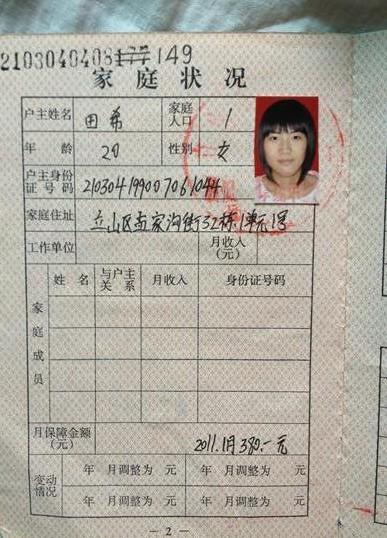 2103040408177149
家庭状况
户主姓名 田希 家庭人口 1
年龄 20 性别 女
户主身份证号码 210304199007061044
家庭住址 立山区孟家沟街32栋1单元1号
工作单位 月收入(元)
姓名 与户主关系 月收入 身份证号码
家庭成员
月保障金额(元) 2011.1月380.-元
变动情况 年 月调整为 元 年 月调整为 元
年 月调整为 元 年 月调整为 元
— 2 —